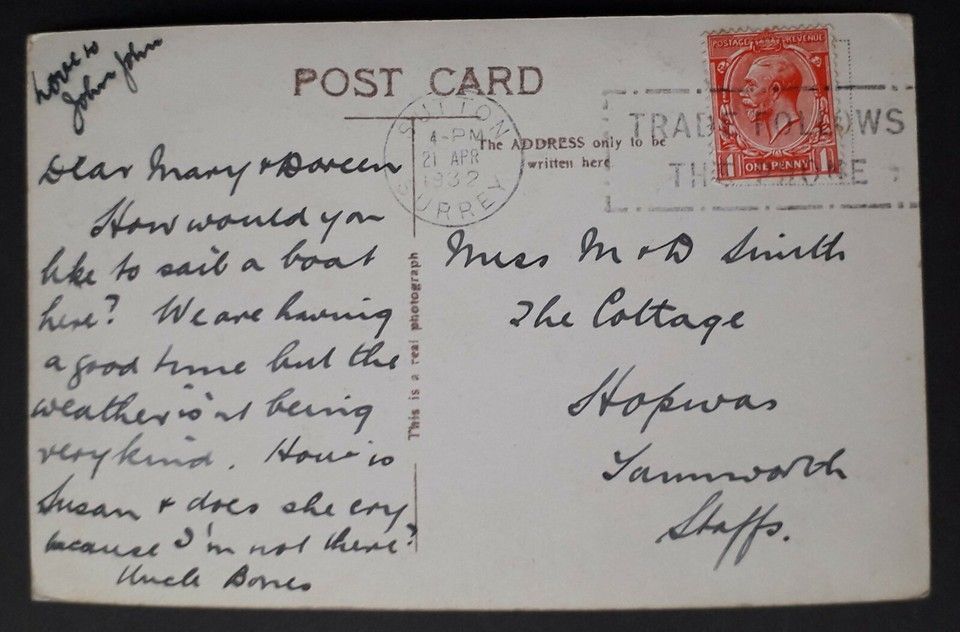 Love to
John John
POST CARD
SUTTON
SURREY
4-PM
21 APR
1932
TRADE FOLLOWS
THE PHONE
POSTAGE REVENUE
1 ONE PENNY 1
The ADDRESS only to be
written here
This is a real photograph
Dear Mary & Doreen
How would you
like to sail a boat
here? We are having
a good time but the
weather is'nt being
very kind. How is
Susan & does she cry
because I'm not there?
Uncle Bones
Miss M & D Smith
The Cottage
Hopwas
Tamworth
Staffs.